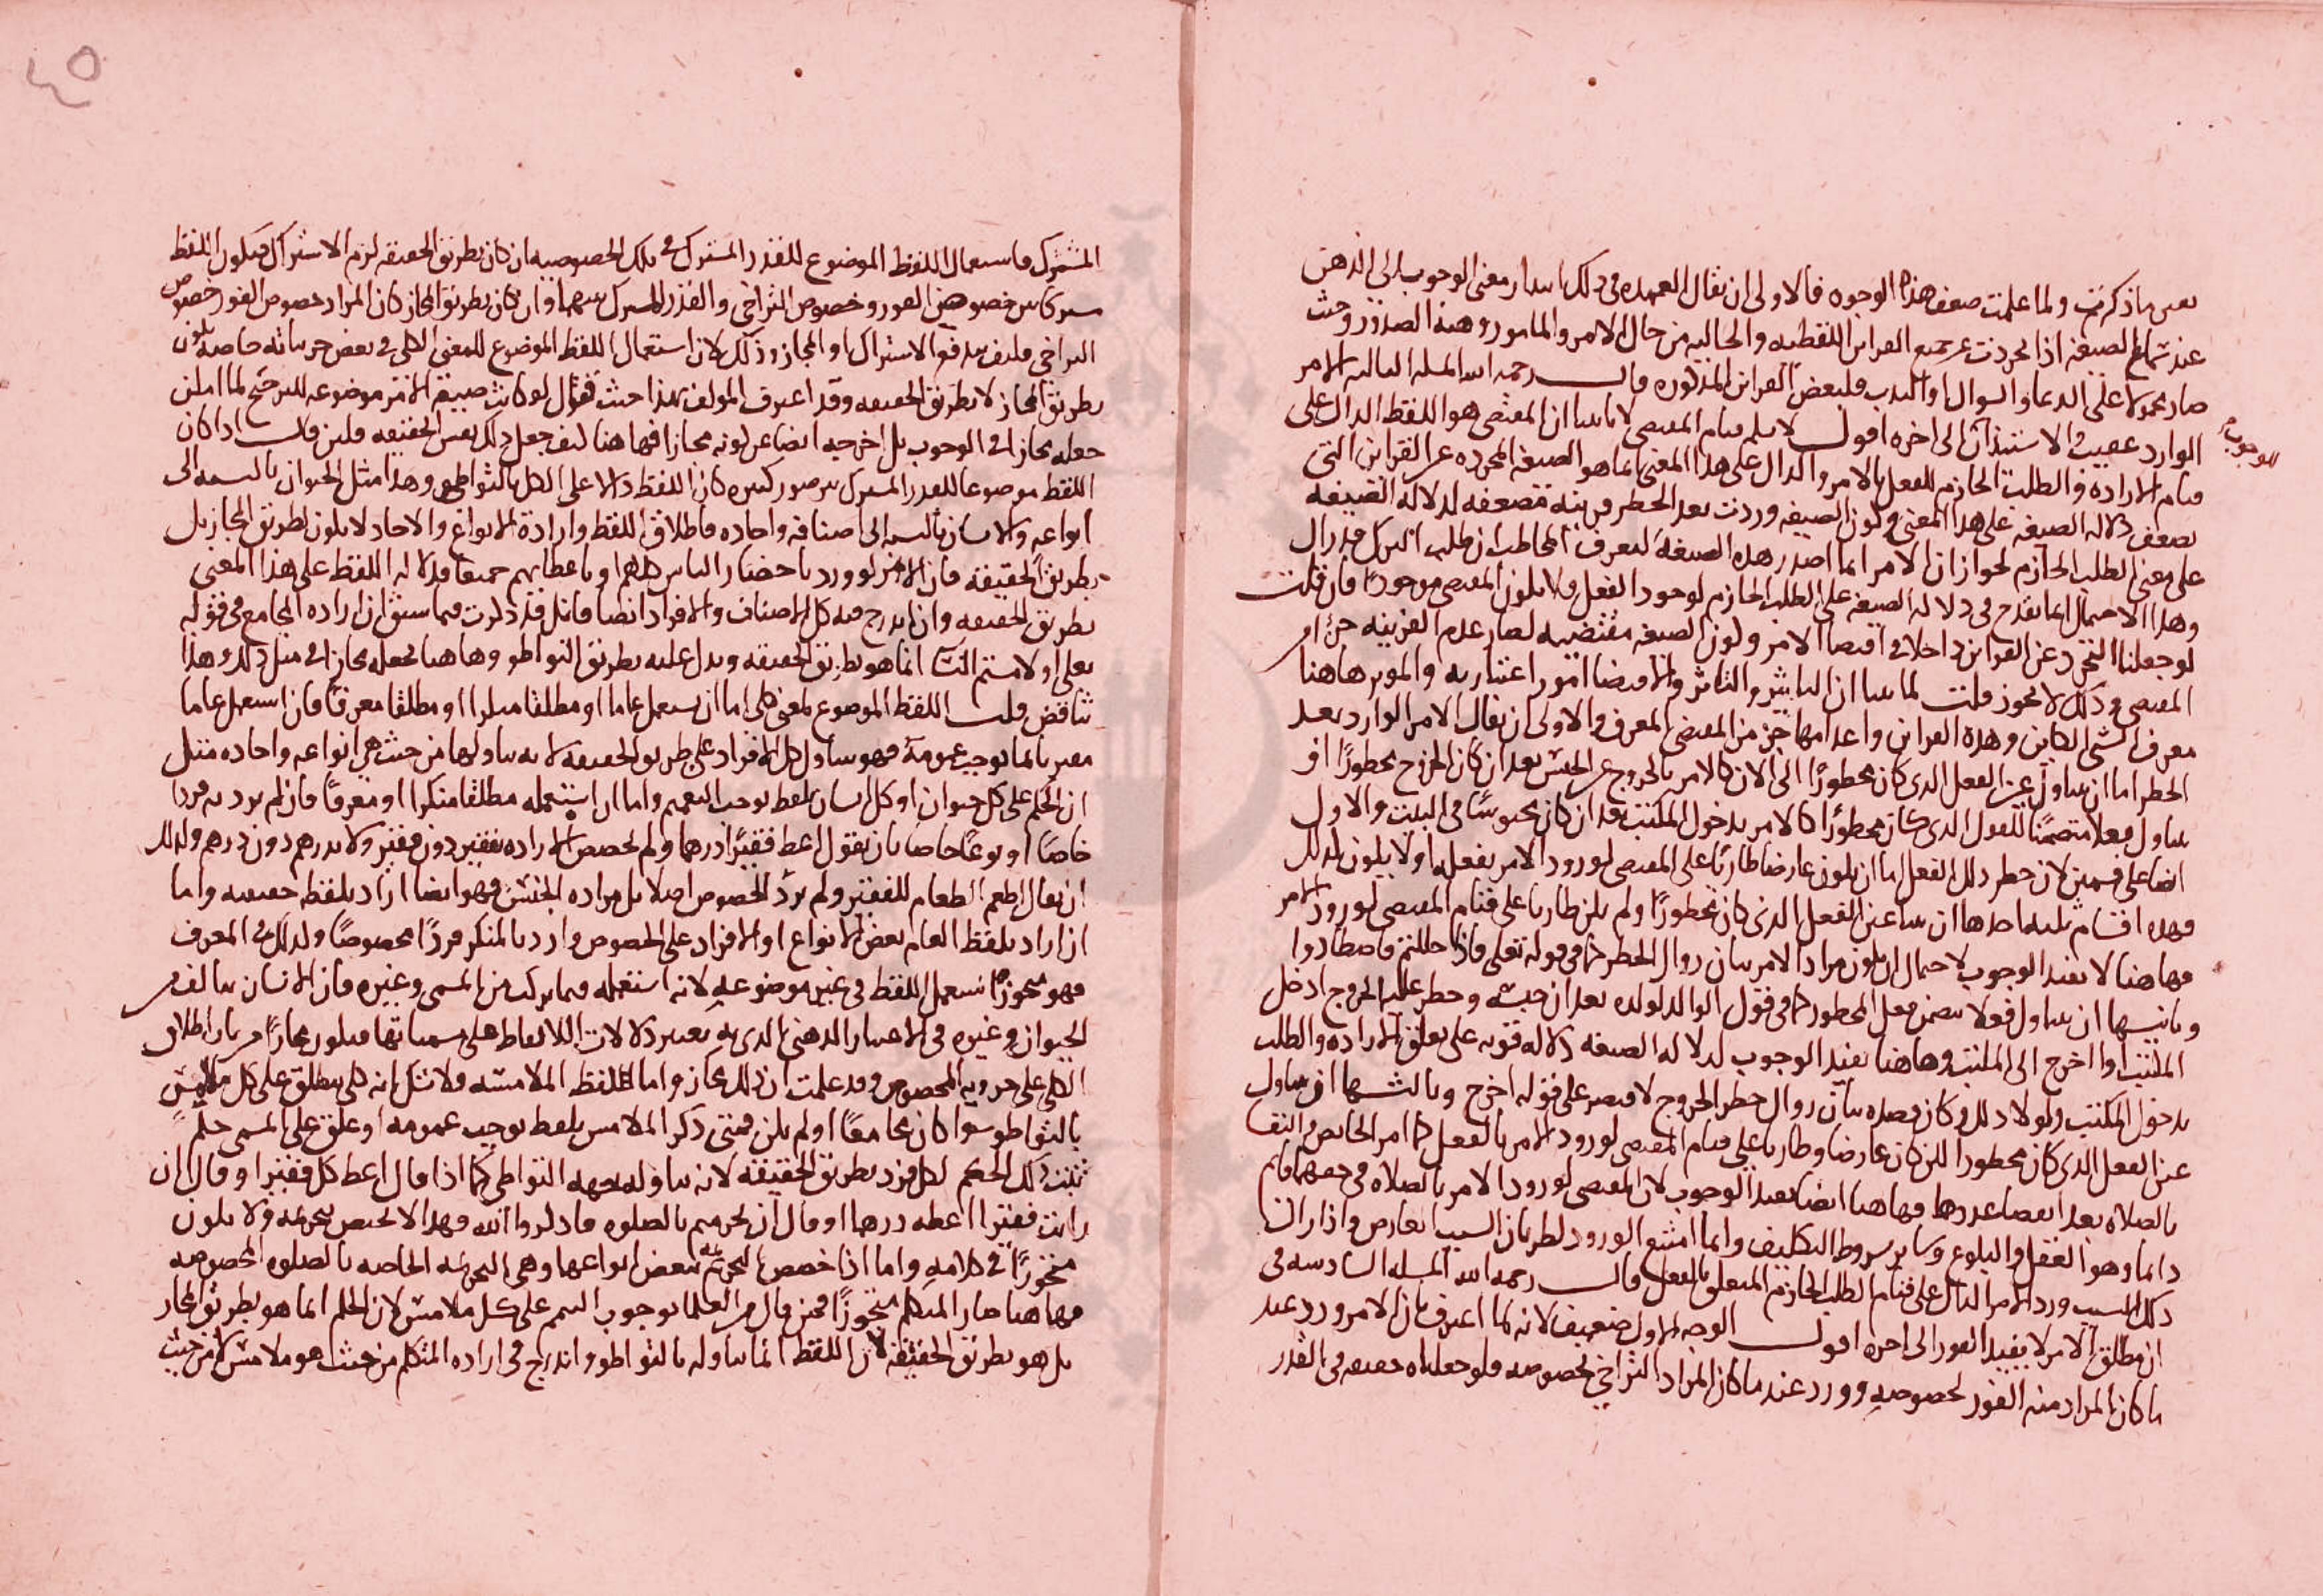 بعين ما ذكرت ولما علمت ضعف هذه الوجوه فالاولى ان يقال العمده في ذلك ابتدار معنى الوجوب الى الذهن
عند سماع الصيغة اذا تجردت عن جميع القراين اللفظيه والحاليه من حال الامر والمامور وهيه الصدور وحيث
صار محمولا على الدعا والسوال او الندب فلبعض القراين المذكوره قال رحمه الله المسله الثالثه الامر
الوارد عقيب الاستئذان الى اخره اقول لا نسلم قيام المقتضي لانا بينا ان المقتضي هو اللفظ الدال على
للوجوب
قيام الاراده والطلب الجازم للفعل بالامر والدال على هذا المعنى انما هو الصيغه المجرده عن القراين التي
تضعف دلاله الصيغه على هذا المعنى وكون الصيغه وردت بعد الحظر قرينه مضعفه لدلاله الصيغه
على معنى الطلب الجازم لجواز ان الامر انما اصدر هذه الصيغه ليعرف المخاطب ان طلب الترك قد زال
وهذا الاحتمال انما يقدح في دلاله الصيغه على الطلب الجازم لوجود الفعل ولا يكون المقتضي موجودا فان قلت
لو جعلنا التجرد عن القراين داخلا في اقتضا الامر وكون الصيغه مقتضيه لصار عدم القرينه جزا من
المقتضي وذلك لا يجوز قلت لما بينا ان التاثير والتاثر والاقتضا امور اعتباريه والموثر هاهنا
معرف الشي الكاين وهذه القراين واعدامها جزء من المقتضي المعرف والاولى ان يقال الامر الوارد بعد
الحظر اما ان يتناول عين الفعل الذي كان محظورا الى الان كالامر بالخروج عن الحبس بعد ان كان الخروج محظورا او
يتناول فعلا متضمنا للفعل الذي كان محظورا كالامر بدخول المكتب بعد ان كان محبوسا في البيت والاول
ايضا على قسمين لان حظر ذلك الفعل اما ان يكون عارضا طاريا على المقتضي لورود الامر بفعله او لا يكون كذلك
فهذه اقسام ثلثه احدها ان يتناول عين الفعل الذي كان محظورا ولم يكن طاريا على قيام المقتضي لورود الامر
فهاهنا لا يفيد الوجوب لاحتمال ان يكون مراد الامر بيان زوال الحظر كما في قوله تعلى فاذا حللتم فاصطادوا
وثانيها ان يتناول فعلا يتضمن فعل المحظور كما في قول الوالد لولده بعد ان حبسه وحظر عليه الخروج ادخل
المكتب او اخرج الى المكتب وهاهنا يفيد الوجوب لدلاله الصيغه دلاله قويه على تعلق الاراده والطلب
بدخول المكتب ولولا ذلك وكان قصده بيان زوال حظر الخروج لاقتصر على قوله اخرج وثالثها ان يتناول
عين الفعل الذي كان محظورا لكن كان عارضا وطاريا على قيام المقتضي لورود الامر بالفعل كما امر الحايض والنفسا
بالصلاه بعد انقضا عذرها فهاهنا ايضا يفيد الوجوب لان المقتضي لورود الامر بالصلاه في حقهما قايم
دايما وهو العقل والبلوغ وساير شروط التكليف وانما امتنع الورود لطريان السبب المعارض واذا زال
ذلك السبب ورد الامر الدال على قيام الطلب الجازم المتعلق بالفعل قال رحمه الله المسله السادسه في
ان مطلق الامر لا يفيد الفور الى اخره اقول الوجه الاول ضعيف لانه لما اعترف بان الامر ورد عند
ما كان المراد منه الفور لخصوصه وورد عند ما كان المراد التراخي بخصوصه فلو جعلناه حقيقه في القدر
المشترك فاستعمال اللفظ الموضوع للقدر المشترك في تلك الخصوصيه ان كان بطريق الحقيقه لزم الاشتراك فيكون اللفظ
مشتركا بين خصوص الفور وخصوص التراخي والقدر المشترك بينهما وان كان بطريق المجاز كان المراد خصوص الفور وخصوص
التراخي فكيف يندفع الاشتراك او المجاز وذلك لان استعمال اللفظ الموضوع للمعنى الكلي في بعض جزياته خاصه يكون
بطريق المجاز لا بطريق الحقيقه وقد اعترف المولف بهذا حيث قال لو كانت صيغه الامر موضوعه للترجيح لما امكن
جعله مجازا في الوجوب بل اخرجه ايضا عن كونه مجازا فهاهنا كيف جعل ذلك بعين الحقيقه فلين قال اذا كان
اللفظ موضوعا للقدر المشترك بين صور كثيره كان اللفظ دالا على الكل بالتواطي وهذا مثل الحيوان بالنسبه الى
انواعه والانسان بالنسبه الى اصنافه واحاده فاطلاق اللفظ وارادة الانواع والاحاد لا يكون بطريق المجاز بل
بطريق الحقيقه فان الامر لو ورد باحضار الناس كلهم او باعطايهم جميعا فدلاله اللفظ على هذا المعنى
بطريق الحقيقه وان اندرج فيه كل الاصناف والافراد ايضا قايل قد ذكرت فيما سبق ان اراده الجامع في قوله
تعلى او لامستم النسا انما هو بطريق الحقيقه ويدل عليه بطريق التواطو وهاهنا تجعله مجازا في مثل ذلك وهذا
تناقض قلت اللفظ الموضوع لمعنى كلي اما ان يستعمل عاما او مطلقا منكرا او مطلقا معرفا فان استعمل عاما
مقترنا بما يوجب عمومه فهو يتناول كل الافراد على طريق الحقيقه لانه يتناولها من حيث هي انواعه واحاده مثل
ان الحكم على كل حيوان او كل انسان بلفظ يوجب التعميم واما ان استعمله مطلقا منكرا او معرفا فان لم يرد به فردا
خاصا او نوعا خاصا بان يقول اعط فقيرا درهما ولم تخصص الاراده بفقير دون فقير ولا بدرهم دون درهم وكذلك
ان يقال اطعم الطعام للفقير ولم يرد الخصوص اصلا بل مراده الجنس فهو ايضا اراد بلفظه حقيقته واما
ان اراد بلفظ العام بعض الانواع او الافراد على الخصوص واراد بالمنكر فردا مخصوصا وكذلك في المعرف
فهو متجوز استعمل اللفظ في غير موضوعه لانه استعمله فيما يركب من المسمى وغيره فان الانسان يتالف من
الحيوان وغيره في الاعتبار الذهني الذي به يعتبر دلالات الالفاظ على مسمياتها فيكون مجازا من باب اطلاق
الكلي على جزويه المخصوص وقد علمت ان ذلك مجاز واما اللفظ الملامسه فلا شك انه كلي ينطلق على كل ملامس
بالتواطو سوا كان مجامعا او لم يكن فمتى ذكر الملامس بلفظ يوجب عمومه او علق على المسمى حكم
ثبت ذلك الحكم لكل فرد بطريق الحقيقه لانه يتناوله بجهه التواطي كما اذا قال اعط كل فقير او قال ان
رايت فقيرا اعطه درهما او قال ان تحرمتم بالصلوه فاذكروا الله وهذا لا يختص بتحريمه ولا يكون
متجوزا في كلامه واما اذا خصص التحريمه ببعض انواعها وهي التحريمه الخاصه بالصلوه المخصوصه
فهاهنا صار المتكلم متجوزا فمن قال من العلما بوجوب التيمم على كل ملامس لان الحكم انما هو بطريق المجاز
بل هو بطريق الحقيقه لان اللفظ انما يتناوله بالتواطو واندرج في اراده المتكلم من حيث هو ملامس لا من حيث